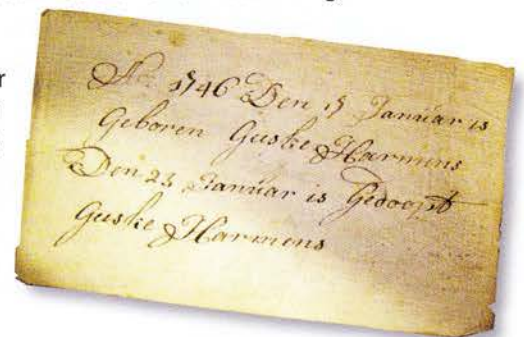 Ao 1746 Den 17 Januar is
Geboren Geeske Harmens
Den 23 Januar is Gedoopt
Geeske Harmens